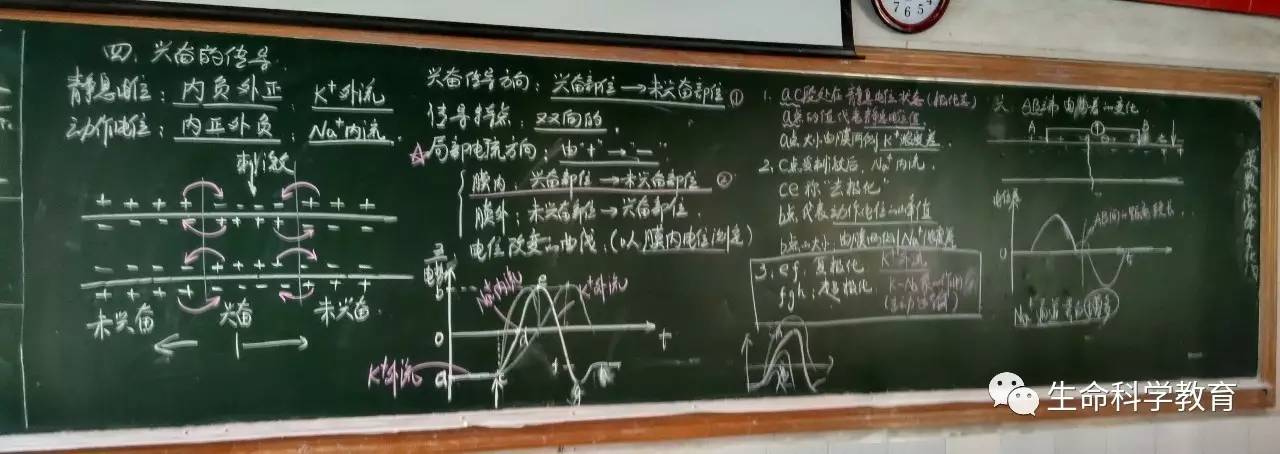 四、兴奋的传导.
静息电位：内负外正、K⁺外流
动作电位：内正外负、Na⁺内流.
刺激
+ + + + - - - - + + + +
- - - - + + + + - - - -
未兴奋 兴奋 未兴奋
兴奋传导方向：兴奋部位→未兴奋部位①
传导特点：双向的.
☆局部电流方向：由"+"→"-"
膜内：兴奋部位→未兴奋部位②
膜外：未兴奋部位→兴奋部位.
电位改变的曲线、(以膜内电位测定)
b
Na⁺内流
K⁺外流
0
t
a
K⁺外流
1、ac段处在静息电位状态(极化态)
a点的值代表静息电位值
a点大小由膜两侧K⁺浓度差
2、c点受刺激后，Na⁺内流.
ce称"去极化"
b点代表动作电位的峰值
b点大小：由膜两侧Na⁺浓度差
3、ef：复极化 K⁺外流
fgh：超极化
A B
电位差
0
t
AB间的距离较长.
7 6 5
生命科学教育